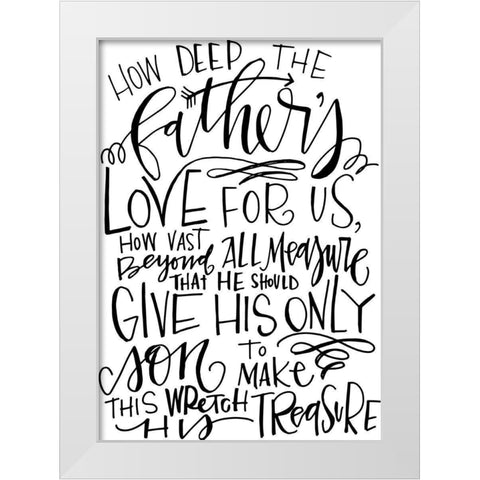 HOW DEEP THE
father's
LOVE FOR US,
HOW VAST
Beyond ALL MEASURE
THAT HE SHOULD
GIVE HIS ONLY
son TO
MAKE
THIS WRETCH
HIS TREASURE